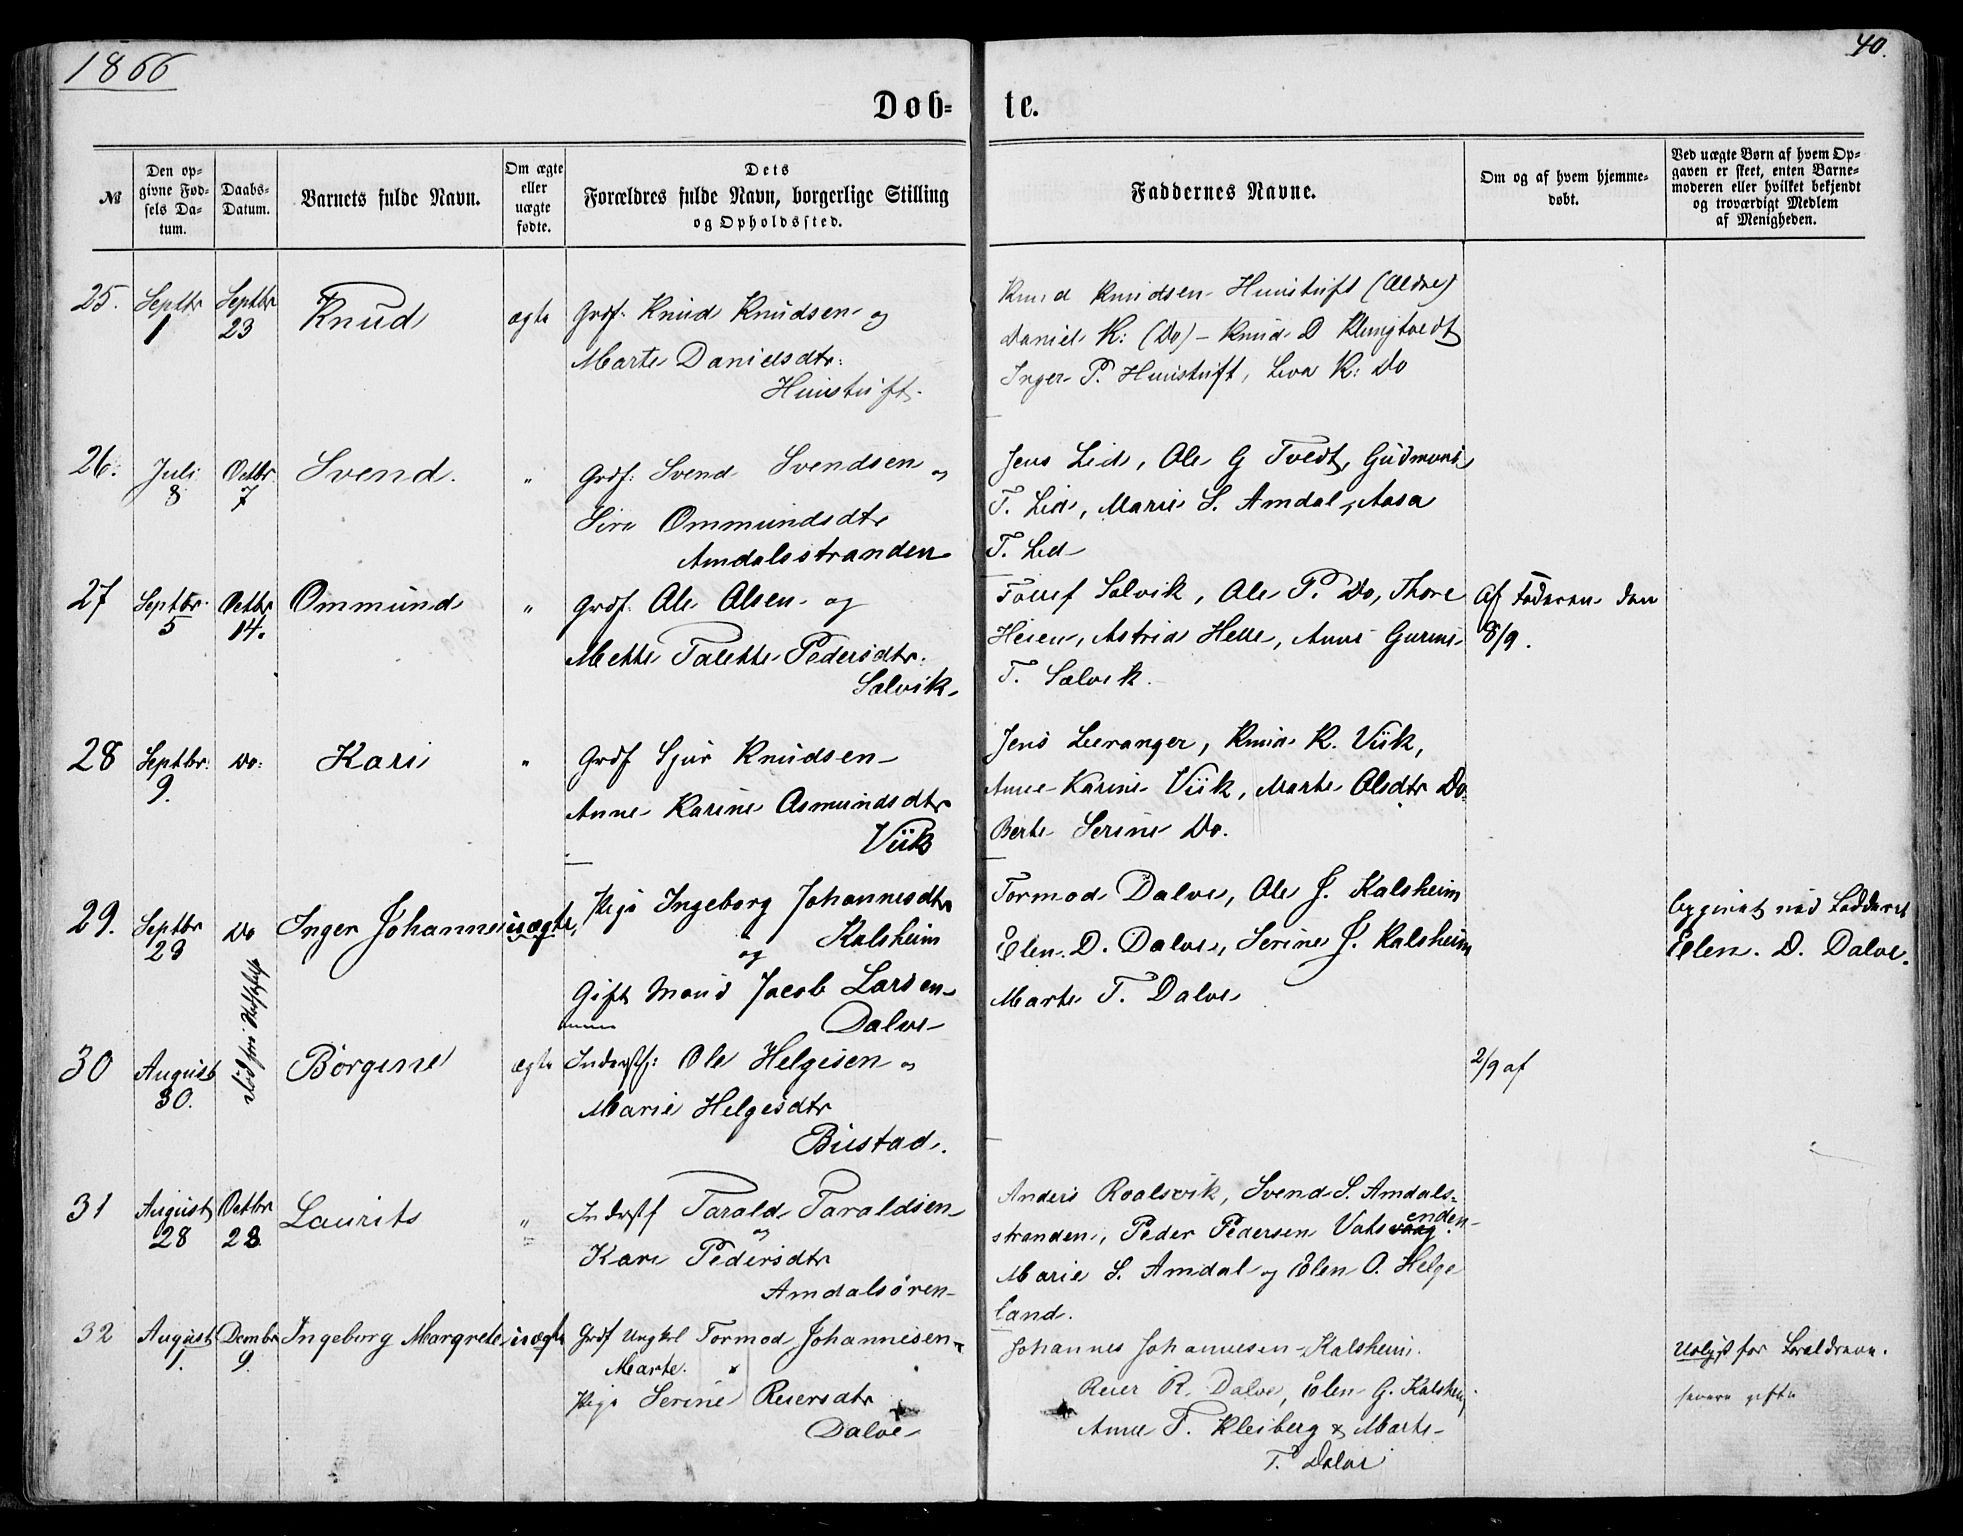 1866
40.
Døb-
te.
№
Den op-
givne Fød-
sels Da-
tum.
Daabs-
Datum.
Barnets fulde Navn.
Om ægte
eller
uægte
fødte.
Dets
Forældres fulde Navn, borgerlige Stilling
og Opholdssted.
Faddernes Navne.
Om og af hvem hjemme-
døbt.
Ved uægte Børn af hvem Op-
gaven er skeet, enten Barne-
moderen eller hvilket bekjendt
og troværdigt Medlem
af Menigheden.
25. Septbr 1
Septbr 23
Knud
ægte
Grdf. Knud Knudsen og
Marte Danielsdtr.
Knud Knudsen (Ældre)
Daniel K: (Do) - Knud D
Inger P. K: Do
26. Juli 8
Octbr 7
Svend.
"
Grdf: Svend Svendsen og
Siri Ommundsdtr
Amdalsstranden
Jens Lid, Ole G Tvedt, Gudmund
T. Lid, Marie S. Amdal, Aasa
T. Lid
27 Septbr. 5
Octbr 14.
Ommund
"
Grdf. Ole Olsen og
Mette Talette Pedersdtr.
Sølvik
Sølvik, Ole P. Do, Thore
Heien, Astrid Helle, Anne Gurine
T. Sølvik.
Af Faderen den
8/9.
28 Septbr. 9.
Do:
Kari
"
Grdf Sjur Knudsen
Anne Karine Asmundsdtr
Viik
Jens Leeranger, Knud K. Viik,
Anne Karine Viik, Marte Olsdtr Do.
Berte Serine Do.
29. Septbr 29
Do
Inger Johanne
uægte,
Pige Ingeborg Johannesdtr
Kalsheim
og
Gift Mand Jacob Larsen
Dalve
Tormod Dalve, Ole J. Kalsheim
Elen D. Dalve, Serine J. Kalsheim
Marte T. Dalve
Elen. D. Dalve.
30 August 30.
Børgine
ægte
Inderst: Ole Helgesen og
Marie Helgesdtr
Bustad.
2/9 af
31 August 28
Octbr 28
Laurits
"
Inderst Tarald Taraldsen
og
Kari Pedersdtr
Amdalsøren
Anders Roalsvik, Svend S. Amdals-
enden
stranden, Peder Pedersen Vatsvaag
Marie S. Amdal og Elen O. Helge
land.
32 August 1.
Dembr 9.
Ingeborg Margrete
uægte
Grdf Ungkl Tormod Johannesen
Marte.
Pige Serine Reiersdtr
Dalve
Johannes Johannesen Kalsheim.
Reier R. Dalve, Elen G. Kalsheim
Anne T. Kleiberg & Marte
T. Dalve
for Forældrene.
senere gifte